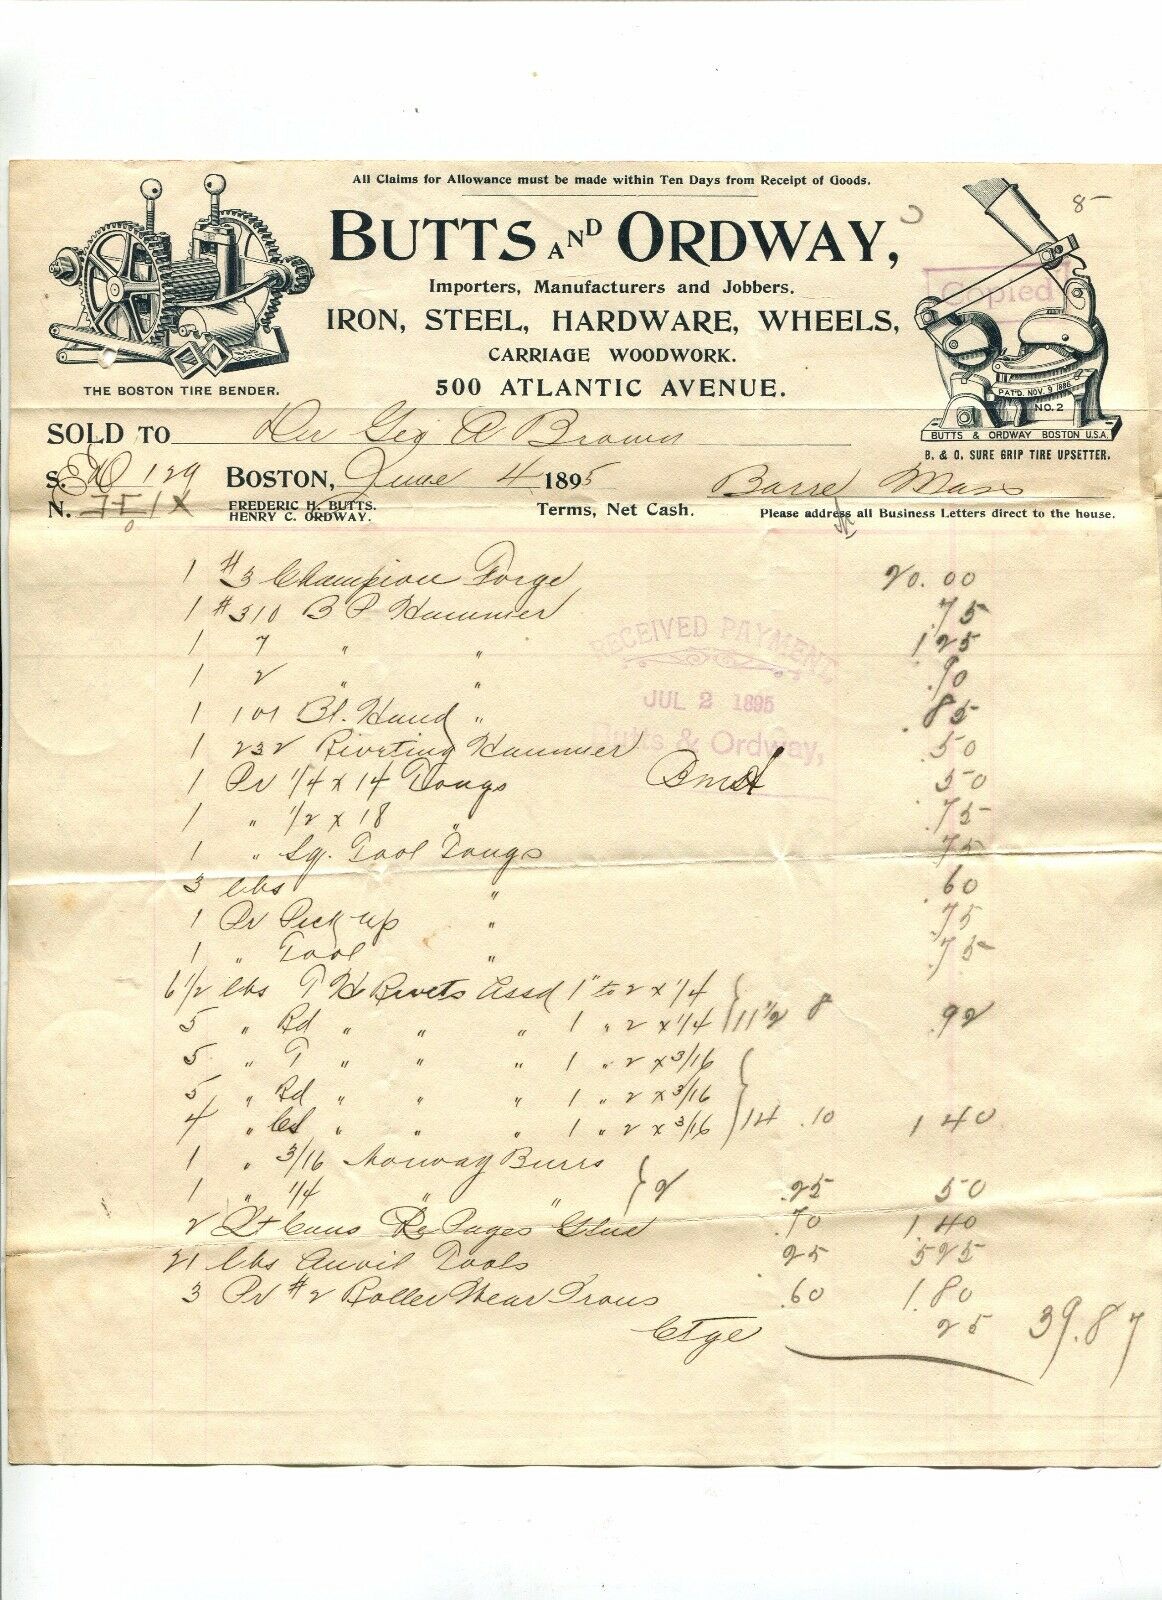 All Claims for Allowance must be made within Ten Days from Receipt of Goods.
8-
BUTTS AND ORDWAY,
Copied
Importers, Manufacturers and Jobbers.
IRON, STEEL, HARDWARE, WHEELS,
CARRIAGE WOODWORK.
THE BOSTON TIRE BENDER.
500 ATLANTIC AVENUE.
PAT'D. NOV. 9 1886
NO. 2
BUTTS & ORDWAY BOSTON U.S.A.
B. & O. SURE GRIP TIRE UPSETTER.
SOLD TO Geo A Brown
S. 129 BOSTON, June 4 1895 Barre Mass
N. FREDERIC H. BUTTS. Terms, Net Cash. Please address all Business Letters direct to the house.
HENRY C. ORDWAY.
1 #3 Champion Forge 20.00
1 #310 B P Hammer .75
1 7 " " 1 25
1 2 " " .90
1 101 Bl. Hand " .85
1 232 Riveting Hammer .50
1 Pr 1/4 x 14 Tongs 50
1 " 1/2 x 18 " .75
1 " Sq. Tool Tongs .75
3 lbs " .60
1 Pr Pick-up " .75
1 " Tool " .75
RECEIVED PAYMENT,
JUL 2 1895
Butts & Ordway,
6 1/2 lbs T H Rivets Assd 1" to 2 x 1/4
5 " Rd " " " 1 " 2 x 1/4 } 11 1/2 8 .92
5 " T " " " 1 " 2 x 3/16
5 " Rd " " " 1 " 2 x 3/16
4 " " " " 1 " 2 x 3/16 } 14 .10 1 40
1 " 3/16 Norway Burrs
1 " 1/4 " " } 2 .25 50
2 Qt Cans Le Pages Glue .70 1.40
21 lbs Anvil Tools 25 5 25
3 Pr #2 Roller Wear Irons .60 1.80
Ctge 25 39.87